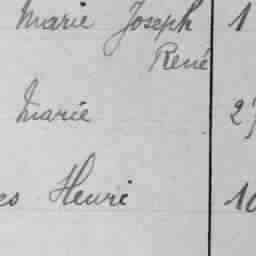 Marie Joseph 1
René
Marie 27
es Henri 10